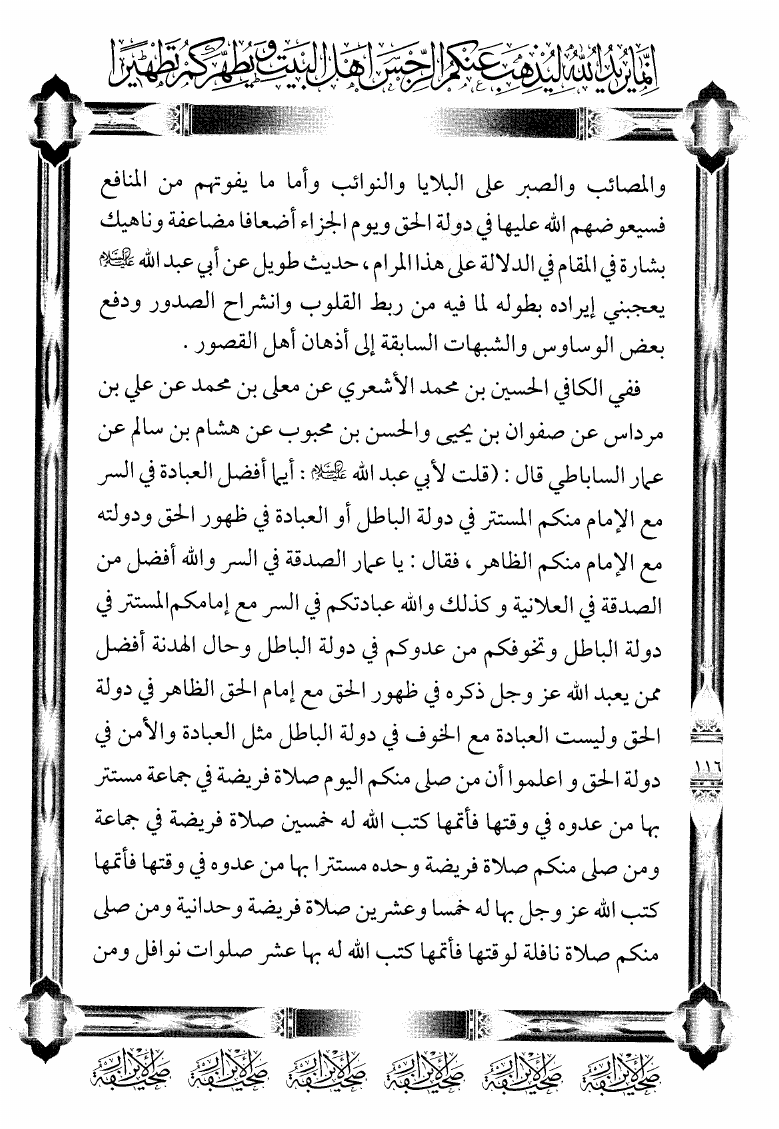 إنما يريد الله ليذهب عنكم الرجس أهل البيت ويطهركم تطهيرا
والمصائب والصبر على البلايا والنوائب وأما ما يفوتهم من المنافع
فسيعوضهم الله عليها في دولة الحق ويوم الجزاء أضعافا مضاعفة وناهيك
بشارة في المقام في الدلالة على هذا المرام ، حديث طويل عن أبي عبد الله عليه السلام
يعجبني إيراده بطوله لما فيه من ربط القلوب وانشراح الصدور ودفع
بعض الوساوس والشبهات السابقة إلى أذهان أهل القصور .
ففي الكافي الحسين بن محمد الأشعري عن معلى بن محمد عن علي بن
مرداس عن صفوان بن يحيى والحسن بن محبوب عن هشام بن سالم عن
عمار الساباطي قال : (قلت لأبي عبد الله عليه السلام : أيما أفضل العبادة في السر
مع الإمام منكم المستتر في دولة الباطل أو العبادة في ظهور الحق ودولته
مع الإمام منكم الظاهر ، فقال : يا عمار الصدقة في السر والله أفضل من
الصدقة في العلانية وكذلك والله عبادتكم في السر مع إمامكم المستتر في
دولة الباطل وتخوفكم من عدوكم في دولة الباطل وحال الهدنة أفضل
ممن يعبد الله عز وجل ذكره في ظهور الحق مع إمام الحق الظاهر في دولة
الحق وليست العبادة مع الخوف في دولة الباطل مثل العبادة والأمن في
دولة الحق و اعلموا أن من صلى منكم اليوم صلاة فريضة في جماعة مستتر
بها من عدوه في وقتها فأتمها كتب الله له خمسين صلاة فريضة في جماعة
ومن صلى منكم صلاة فريضة وحده مستترا بها من عدوه في وقتها فأتمها
كتب الله عز وجل بها له خمسا وعشرين صلاة فريضة وحدانية ومن صلى
منكم صلاة نافلة لوقتها فأتمها كتب الله له بها عشر صلوات نوافل ومن
١١٦
صحيفة الأبرار صحيفة الأبرار صحيفة الأبرار صحيفة الأبرار صحيفة الأبرار صحيفة الأبرار